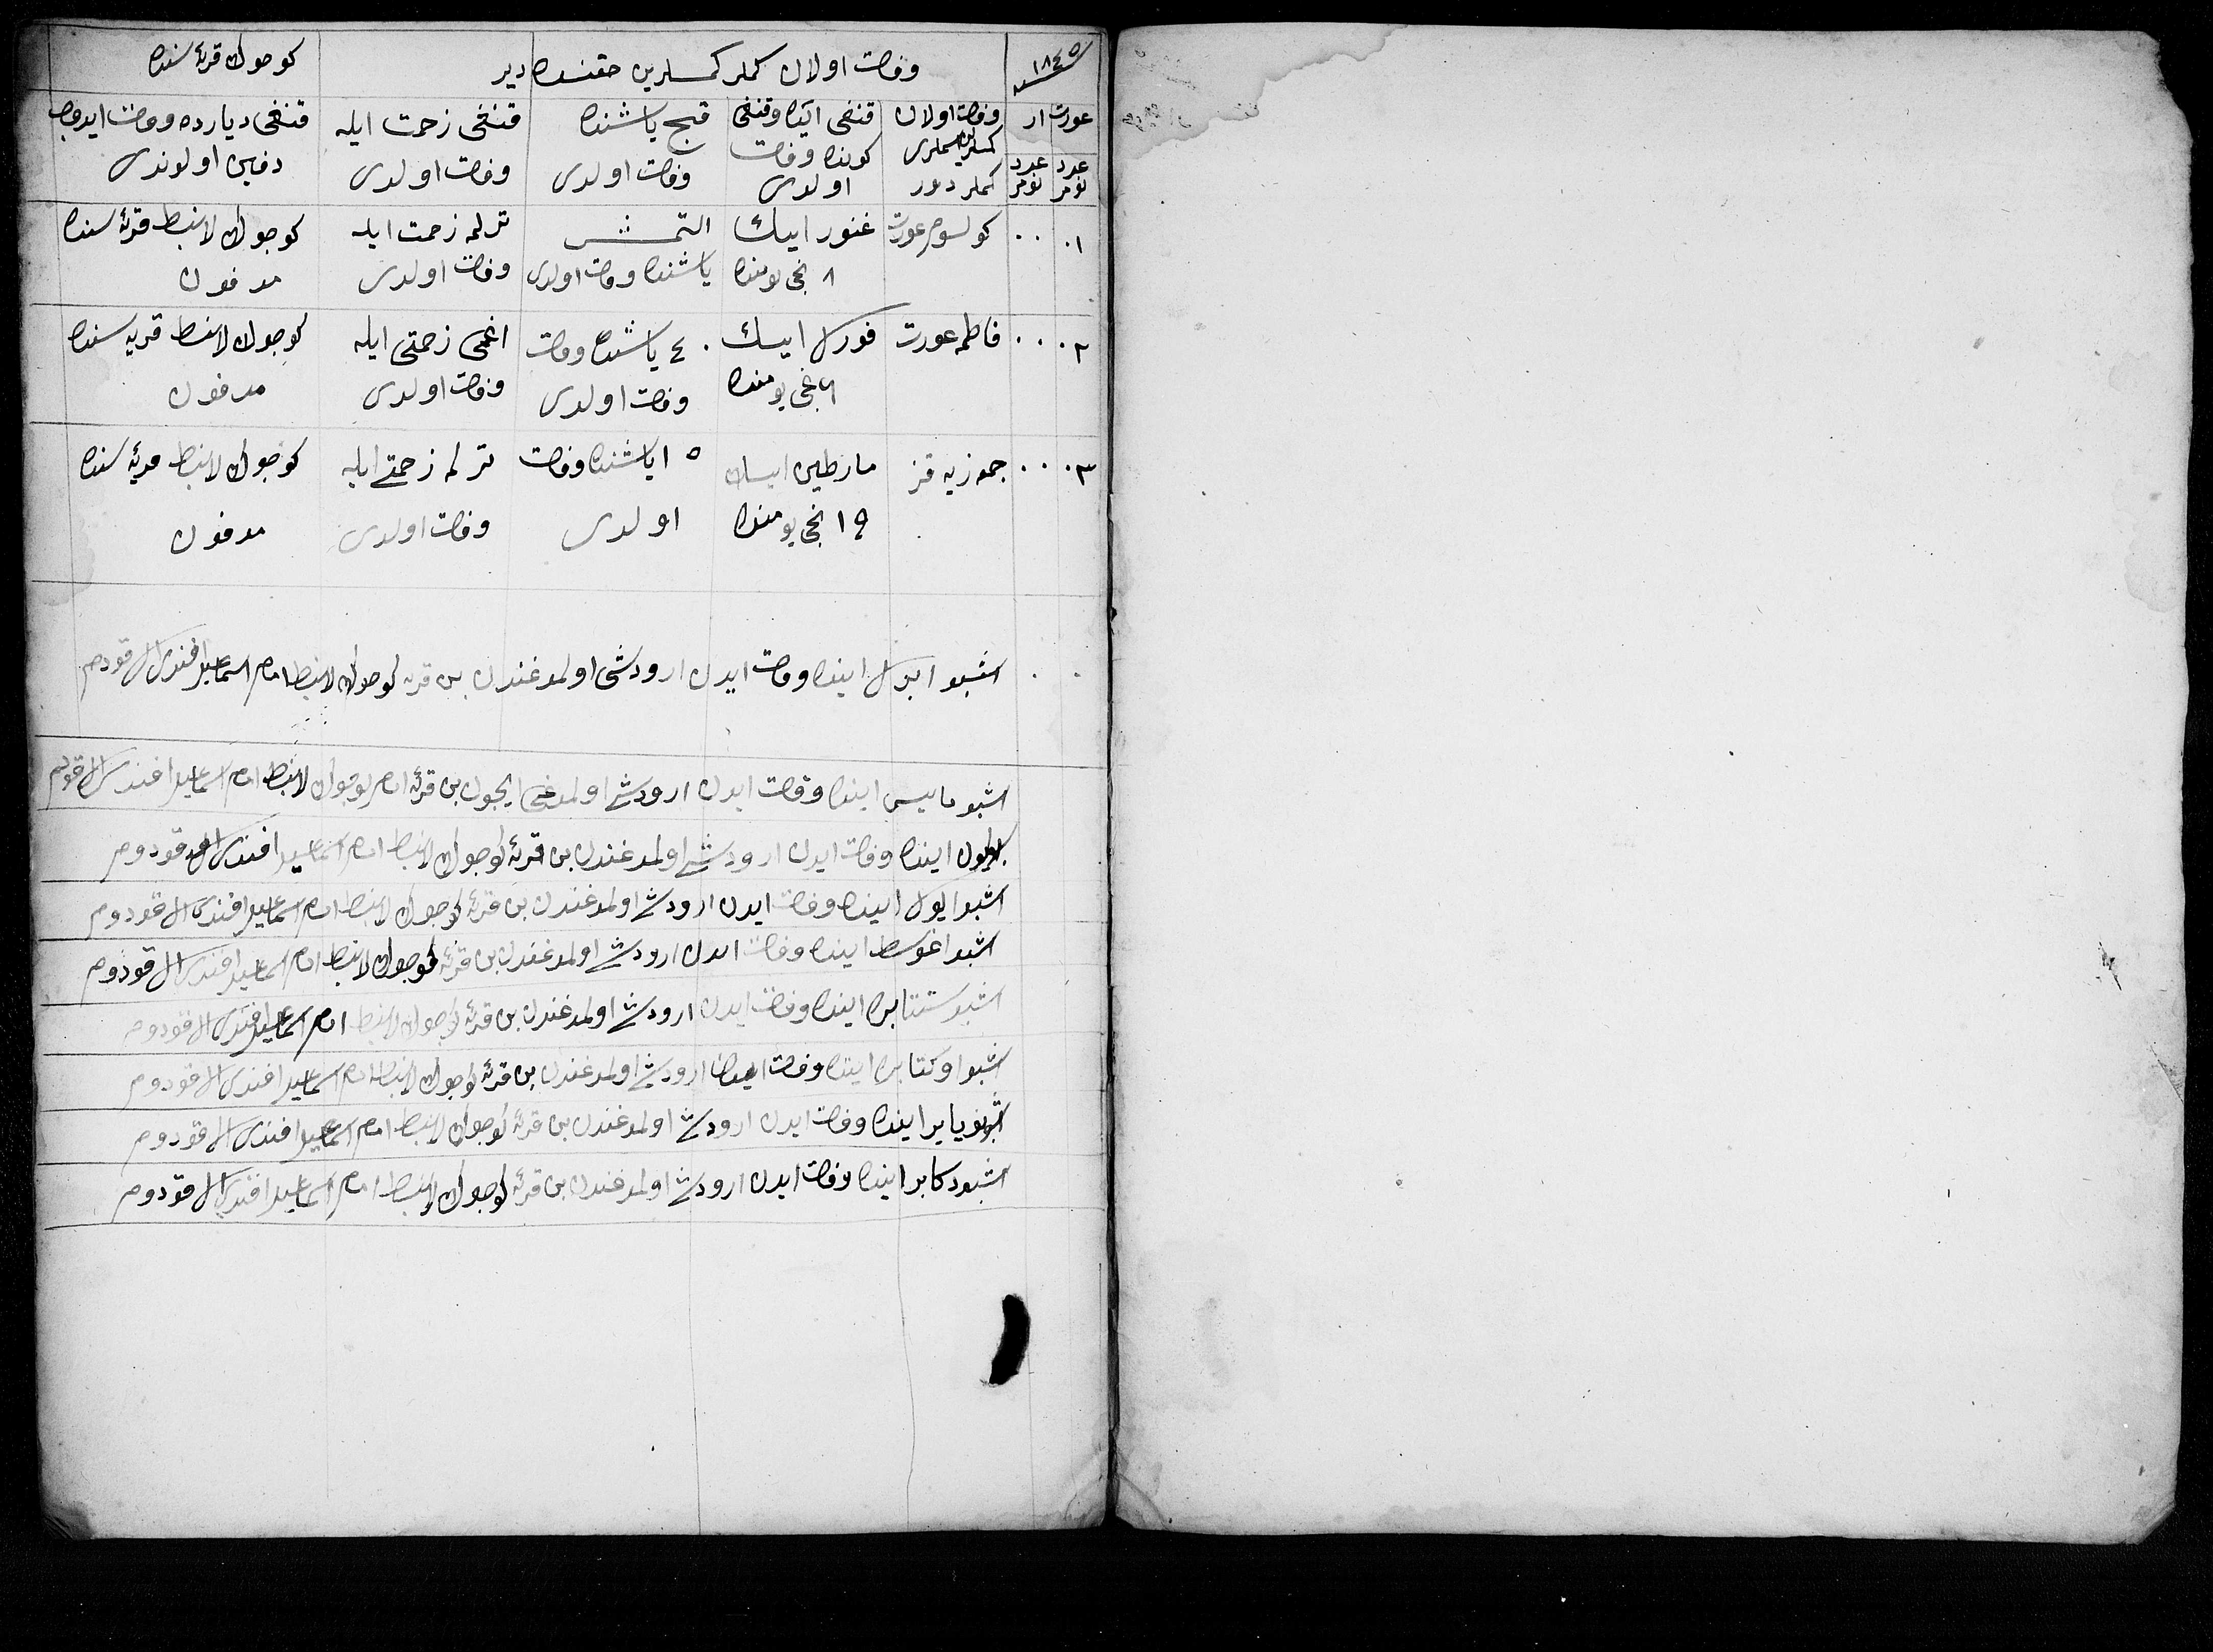 ١٨٤٥ سنه
وفات اولان كملر كمسلرين حقنده دير
كوجوك قريه سنده
عورت ار
عدد نومر عدد نومر
وفات اولان كمسلرين اسملرى كملر دور
قنغى آيده وقنغى كونده وفات اولدى
قچ ياشنده وفات اولدى
قنغى زحمت ايله وفات اولدى
قنغى ديارده ووفات ايدوب دفين اولوندى
٠١ ٠٠ كولسوم عورت
غنور ايسك ٨ نجى يومنده
التمش ياشنده وفات اولدى
ترلمه زحمت ايله وفات اولدى
كوجوك لانبط قريه سنده مدفون
٠٢ ٠٠ فاطمه عورت
فورل ايسك ٦ غجى يومنده
٤٠ ياشنده وفات وفات اولدى
اغمى زحمتى ايله وفات اولدى
كوجوك لانبط قريه سنده مدفون
٠٣ ٠٠ جموزيه قز
مارطين ايسك ١٩ نجى يومنده
١٥ ياشنده وفات اولدى
ترلمه زحمتى ايله وفات اولدى
كوجوك لانبط قريه سنده مدفون
اشبو ابرل اينده وفات ايدن ارودشى اولمدغندن بن قريه كوجوك لانبط امام اسماعيل افندى ال قودم
اشبو مايس اينده وفات ايدن ارودشى اولمدغى ايچون بن قريه امام كوجوك لانبط امام اسماعيل افندى ال قودم
اينده وفات ايدن ارودشى اولمدغندن بن قريه كوجوك لانبط امام اسماعيل افندى ال قودوم
اشبو ايول اينده وفات ايدن ارودشى اولمدغندن بن قريه كوجوك لانبط امام اسماعيل افندى ال قودوم
اشبو اغوسط اينده وفات ايدن ارودشى اولمدغندن بن قريه كوجوك لانبط امام اسماعيل افندى ال قودوم
اشبو ستنتابره اينده وفات ايدن ارودشى اولمدغندن بن قريه كوجوك لانبط امام اسماعيل افندى ال قودوم
اشبو اوكتابره اينده وفات ايدن ارودشى اولمدغندن بن قريه كوجوك لانبط امام اسماعيل افندى ال قودوم
اشبو نويابر اينده وفات ايدن ارودشى اولمدغندن بن قريه كوجوك لانبط امام اسماعيل افندى ال قودوم
اشبو دكابر اينده وفات ايدن ارودشى اولمدغندن بن قريه كوجوك لانبط امام اسماعيل افندى ال قودوم